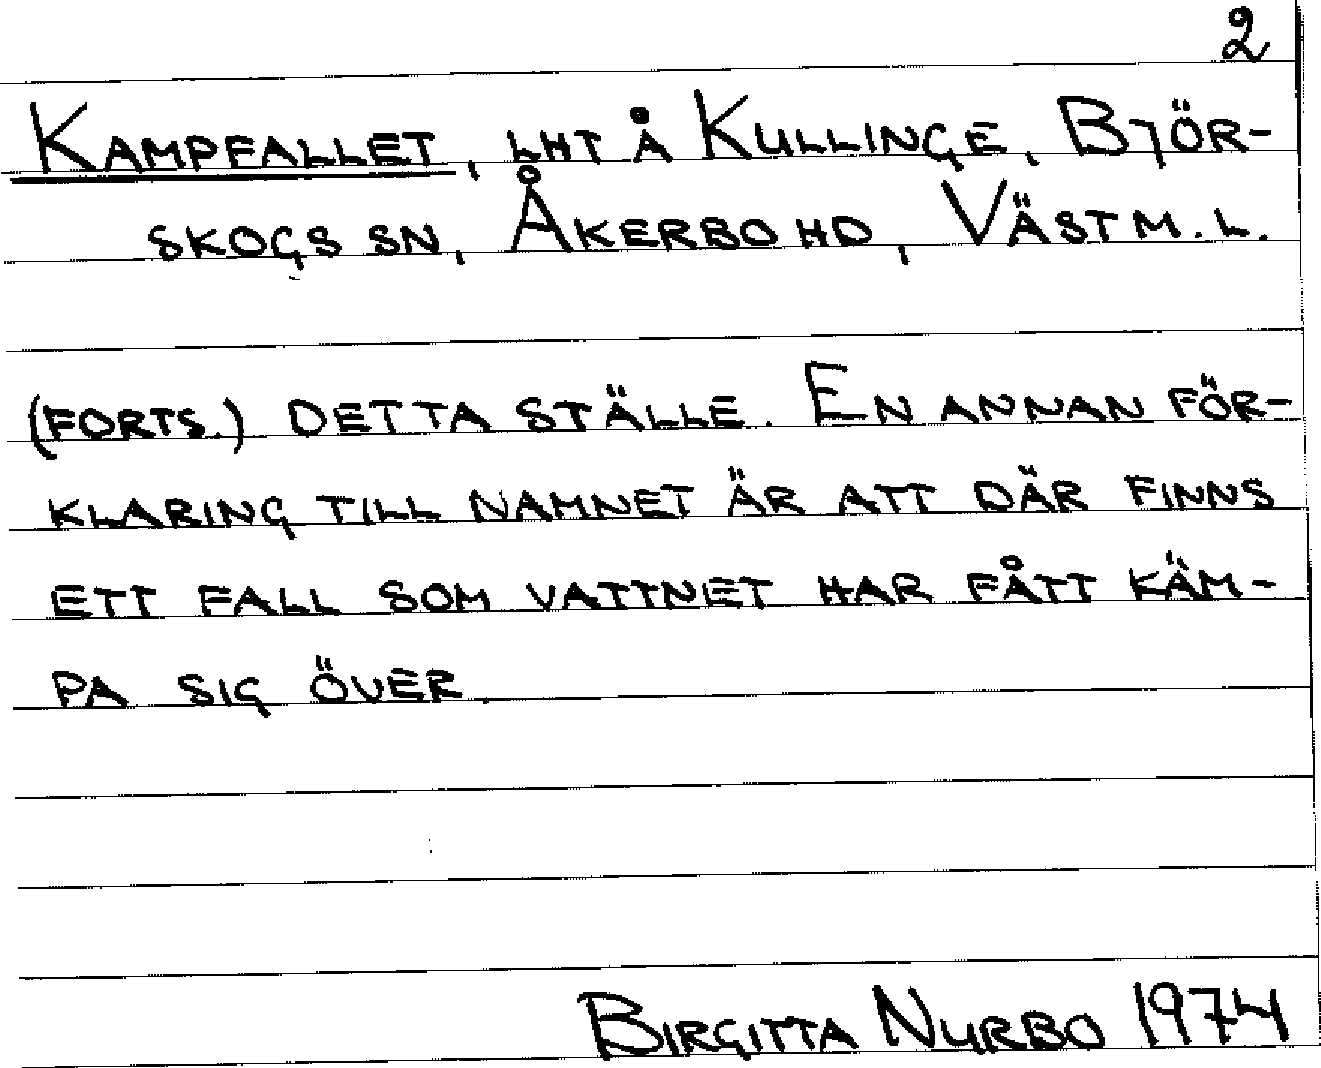 2
KAMPFALLET, LHT Å KULLINGE, BJÖR-
SKOGS SN, ÅKERBO HD, VÄSTM.L.
(FORTS.) DETTA STÄLLE. EN ANNAN FÖR-
KLARING TILL NAMNET ÄR ATT DÄR FINNS
ETT FALL SOM VATTNET HAR FÅTT KÄM-
PA SIG ÖVER.
BIRGITTA NURBO 1974